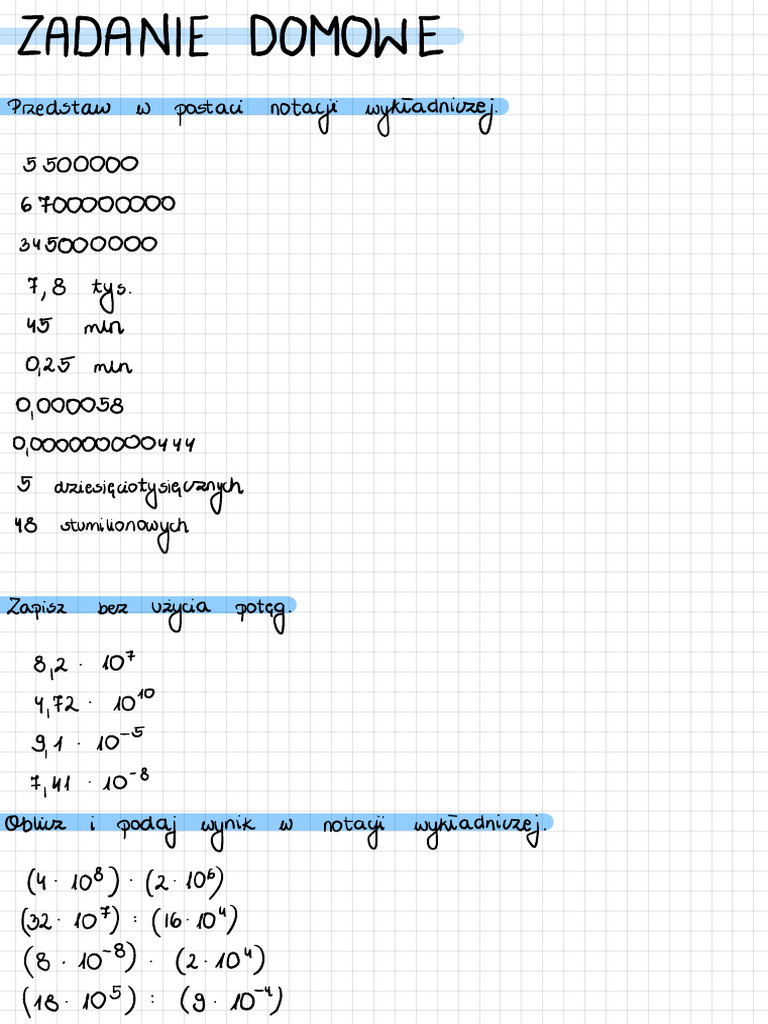 ZADANIE DOMOWE
Przedstaw w postaci notacji wykładniczej.
5 500000
6 700000000
345000000
7,8 tys.
45 mln
0,25 mln
0,000058
0,000000000444
5 dziesięciotysięcznych
48 stumilionowych
Zapisz bez użycia potęg.
8,2 · 10⁷
4,72 · 10¹⁰
9,1 · 10⁻⁵
7,41 · 10⁻⁸
Oblicz i podaj wynik w notacji wykładniczej.
(4 · 10⁸) · (2 · 10⁶)
(32 · 10⁷) : (16 · 10⁴)
(8 · 10⁻⁸) · (2 · 10⁴)
(18 · 10⁵) : (9 · 10⁻⁴)